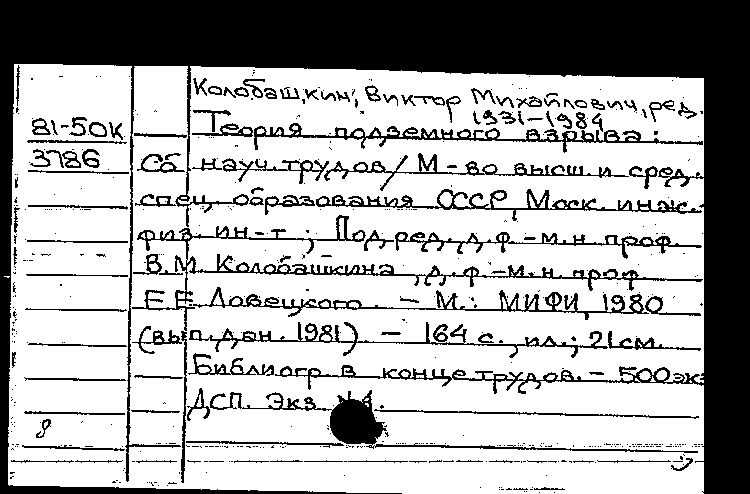 Колобашкин, Виктор Михайлович, ред.
1931-1984
81-50К Теория подземного взрыва:
3786 Сб науч. трудов / М-во высш. и сред.
спец. образования СССР, Моск. инж.-
физ. ин-т ; Под ред. д. ф.-м. н. проф.
В.М. Колобашкина, д. ф.-м. н. проф.
Е.Е. Ловецкого. - М.: МИФИ, 1980
(вып. дан. 1981) - 164 с., ил.; 21 см.
Библиогр. в конце трудов. - 500 экз
ДСП. Экз
8